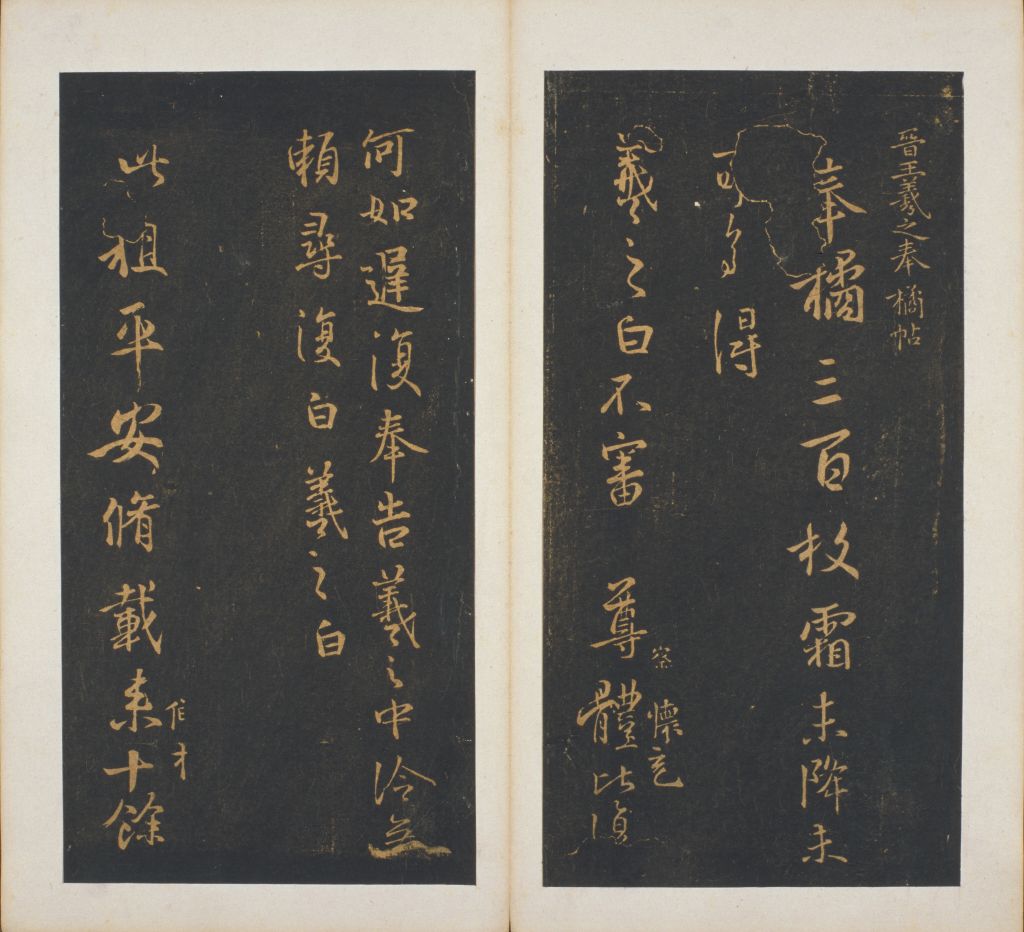 晉王羲之奉橘帖
奉橘三百枚霜未降未
可多得
羲之白不審尊體比復
察懷充
何如遲復奉告羲之中冷無
賴尋復白羲之白
此粗平安脩載来十餘